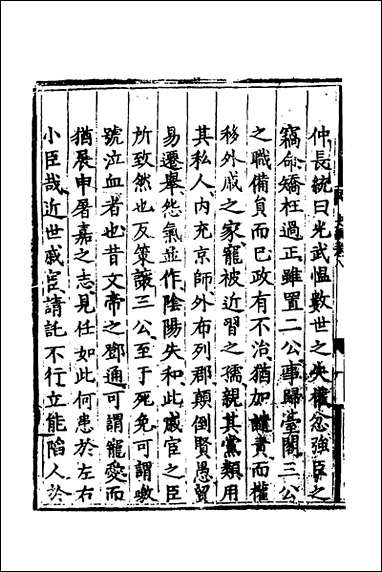 仲長統曰光武愠數世之失權忿強臣之
竊命矯枉過正雖置三公事歸臺閣三公
之職備員而已政有不治猶加譴責而權
移外戚之家寵被近習之孺親其黨類用
其私人内充京師外布列郡顛倒賢愚貿
易選舉怨氣並作陰陽失和此戚宦之臣
所致然也反策讓三公至于死免可謂嗷
號泣血者也昔文帝之鄧通可謂寵愛而
猶展申屠嘉之志見任如此何患於左右
小臣哉近世戚宦請託不行立能陷人於